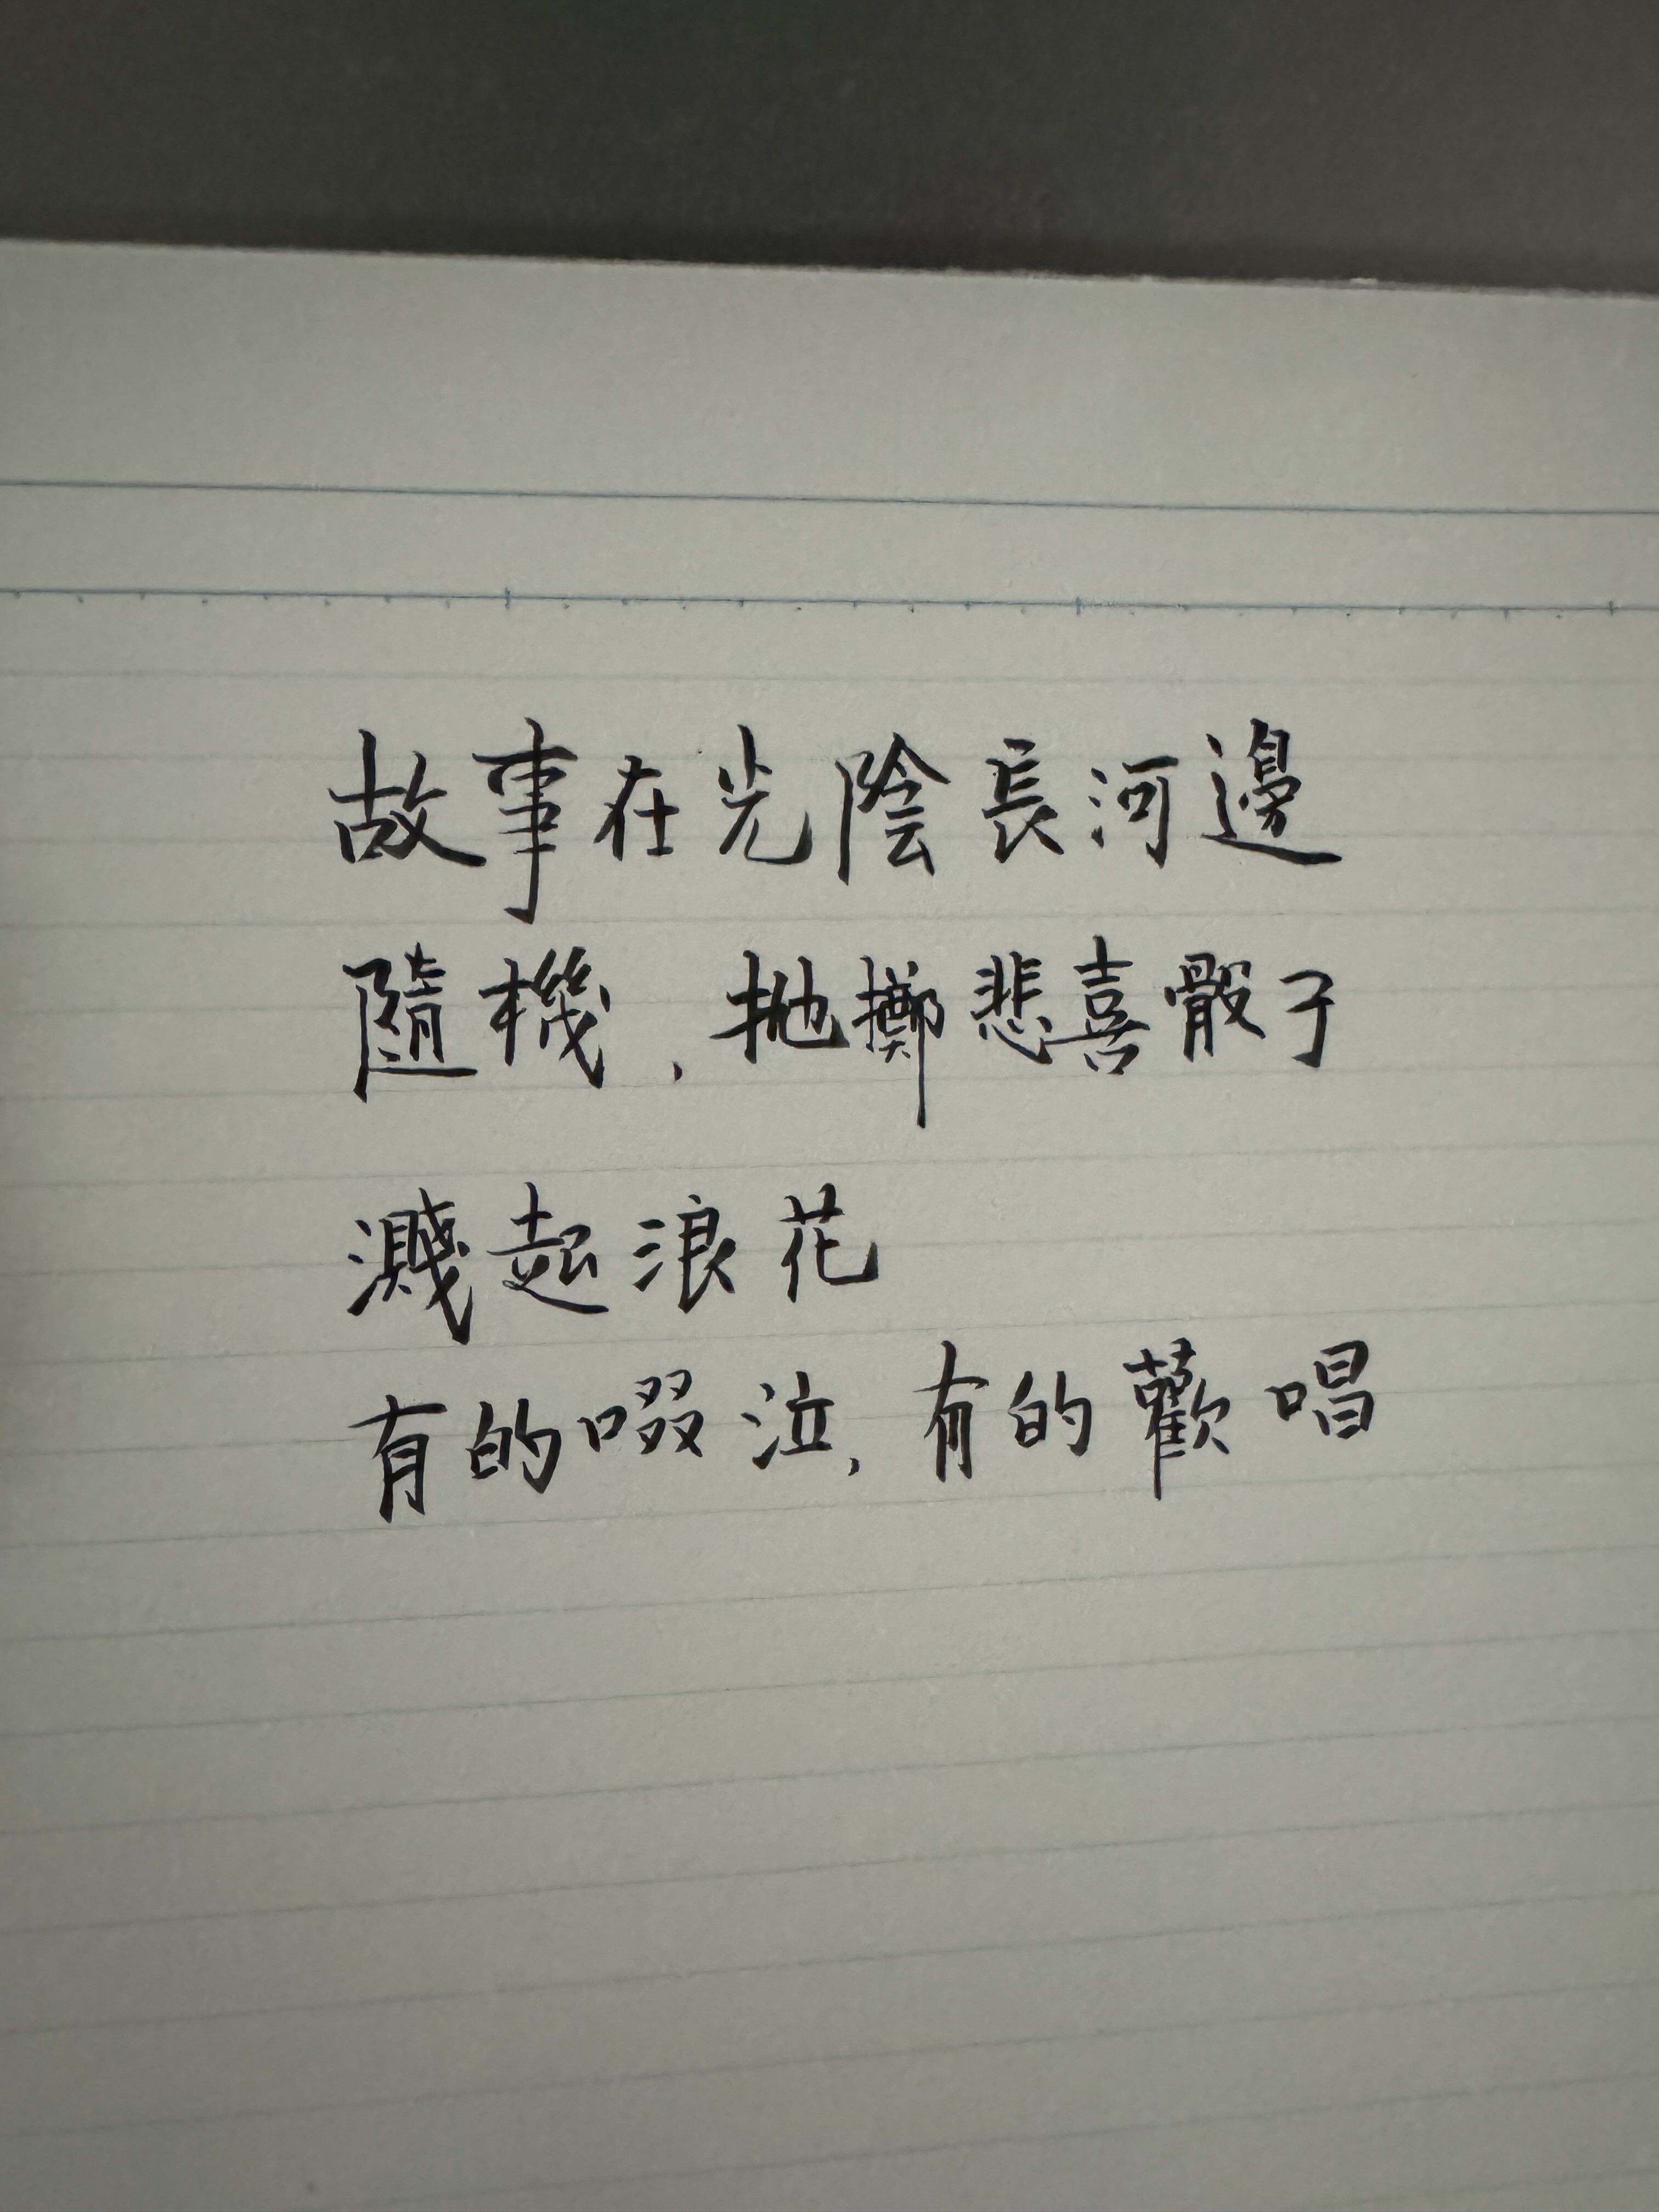 故事在光陰長河邊
隨機，拋擲悲喜骰子
濺起浪花
有的啜泣，有的歡唱